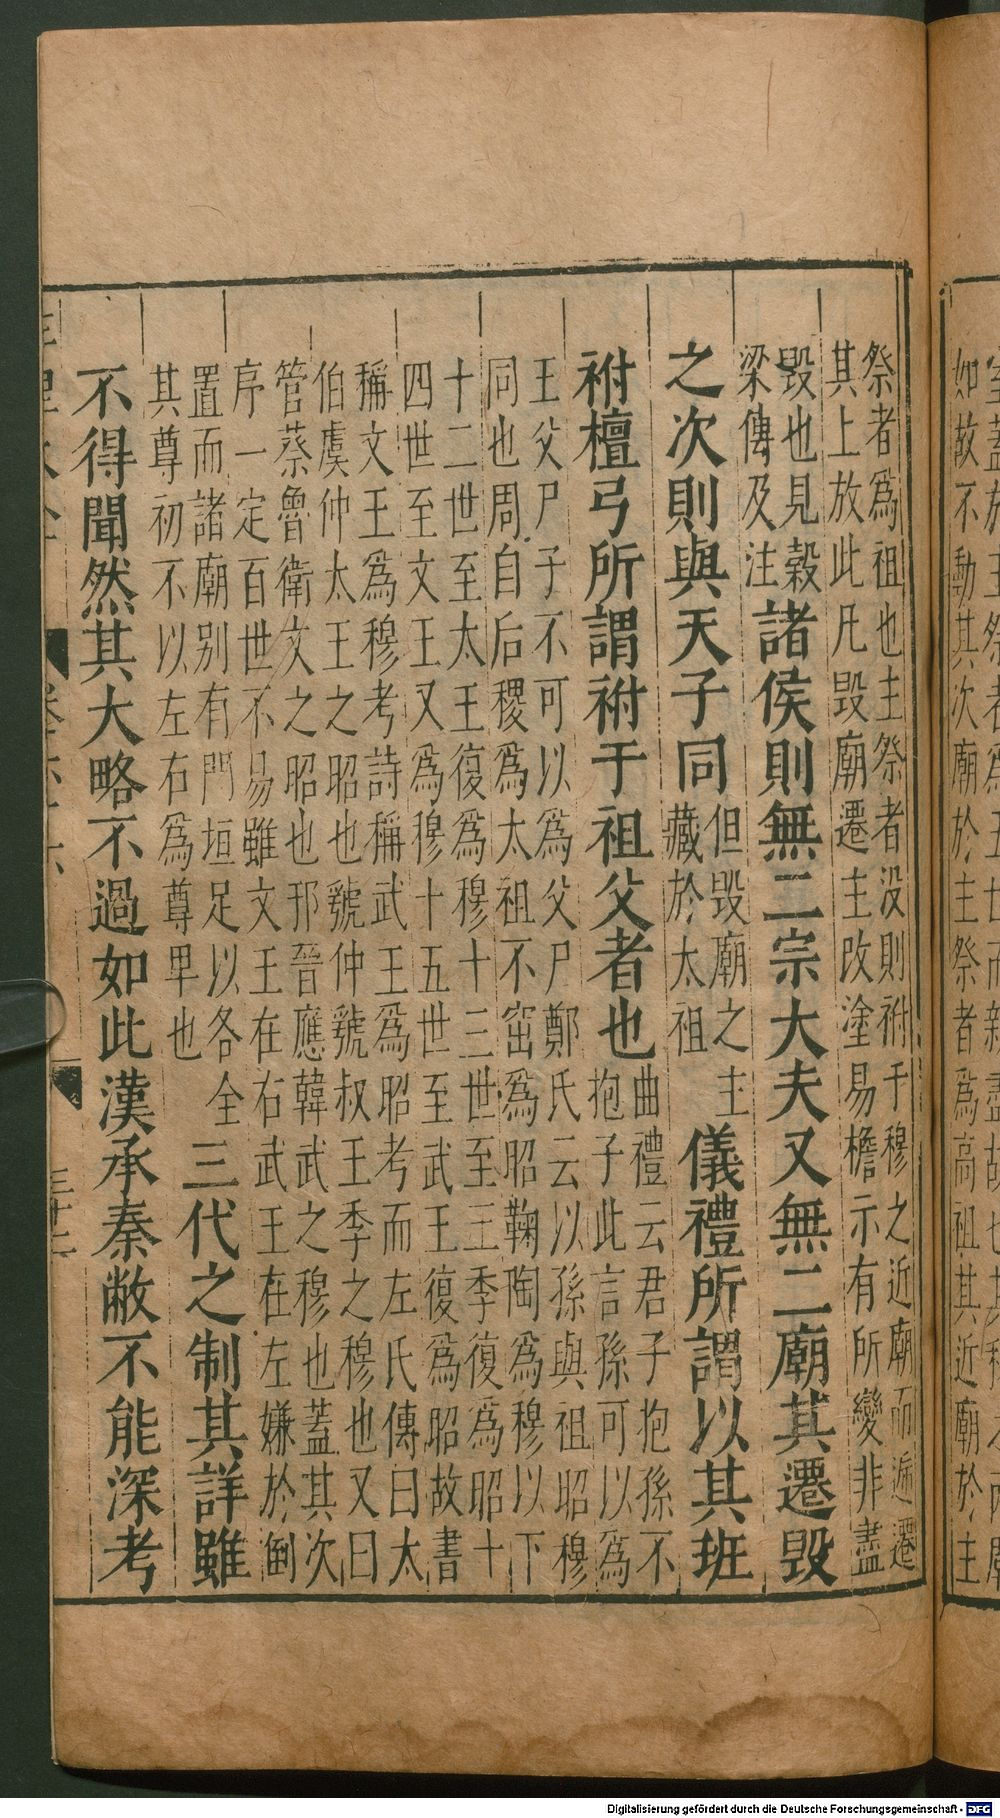 如故不動其次廟於主祭者爲高祖其近廟於主
祭者爲祖也主祭者没則祔于穆之近廟而遞遷
其上放此凡毁廟遷主改塗易檐示有所變非盡
毁也見穀
梁傳及注
諸侯則無二宗大夫又無二廟其遷毁
之次則與天子同
但毁廟之主
藏於太祖
儀禮所謂以其班
祔檀弓所謂祔于祖父者也
曲禮云君子抱孫不
抱子此言孫可以爲
王父尸子不可以爲父尸鄭氏云以孫與祖昭穆
同也周自后稷爲太祖不窋爲昭鞠陶爲穆以下
十二世至太王復爲穆十三世至王季復爲昭十
四世至文王又爲穆十五世至武王復爲昭故書
稱文王爲穆考詩稱武王爲昭考而左氏傳曰太
伯虞仲太王之昭也虢仲虢叔王季之穆也又曰
管蔡魯衛文之昭也邘晉應韓武之穆也蓋其次
序一定百世不易雖文王在右武王在左嫌於倒
置而諸廟别有門垣足以各全
其尊初不以左右爲尊卑也
三代之制其詳雖
不得聞然其大略不過如此漢承秦敝不能深考
Digitalisierung gefördert durch die Deutsche Forschungsgemeinschaft - DFG